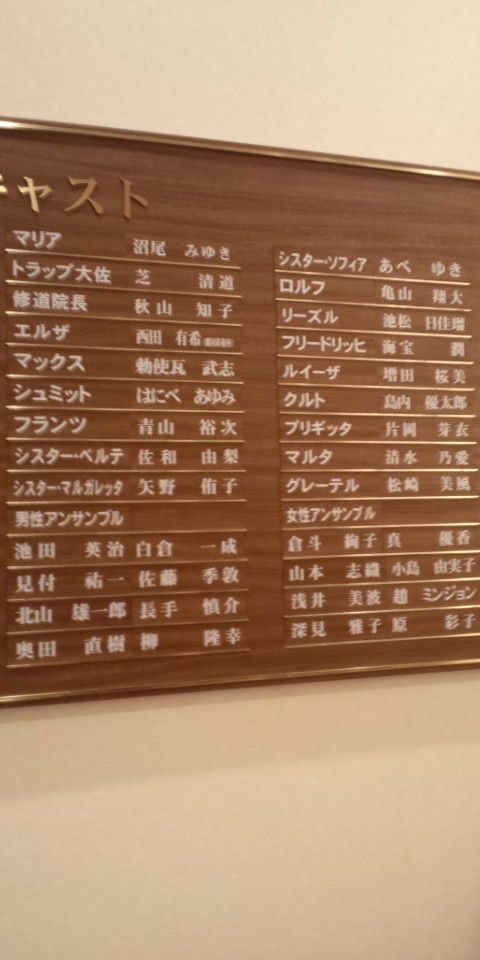 キャスト
マリア 沼尾 みゆき
トラップ大佐 芝 清道
修道院長 秋山 知子
エルザ 西田 有希
マックス 勅使瓦 武志
シュミット はにべ あゆみ
フランツ 青山 裕次
シスター・ベルテ 佐和 由梨
シスター・マルガレッタ 矢野 侑子
男性アンサンブル
池田 英治 白倉 一成
見付 祐一 佐藤 季敦
北山 雄一郎 長手 慎介
奥田 直樹 柳 隆幸
シスター・ソフィア あべ ゆき
ロルフ 亀山 翔大
リーズル 池松 日佳瑠
フリードリッヒ 海宝 潤
ルイーザ 増田 桜美
クルト 島内 優太郎
ブリギッタ 片岡 芽衣
マルタ 清水 乃愛
グレーテル 松崎 美風
女性アンサンブル
倉斗 絢子 真 優香
山本 志織 小島 由実子
浅井 美波 趙 ミンジョン
深見 雅子 原 彩子